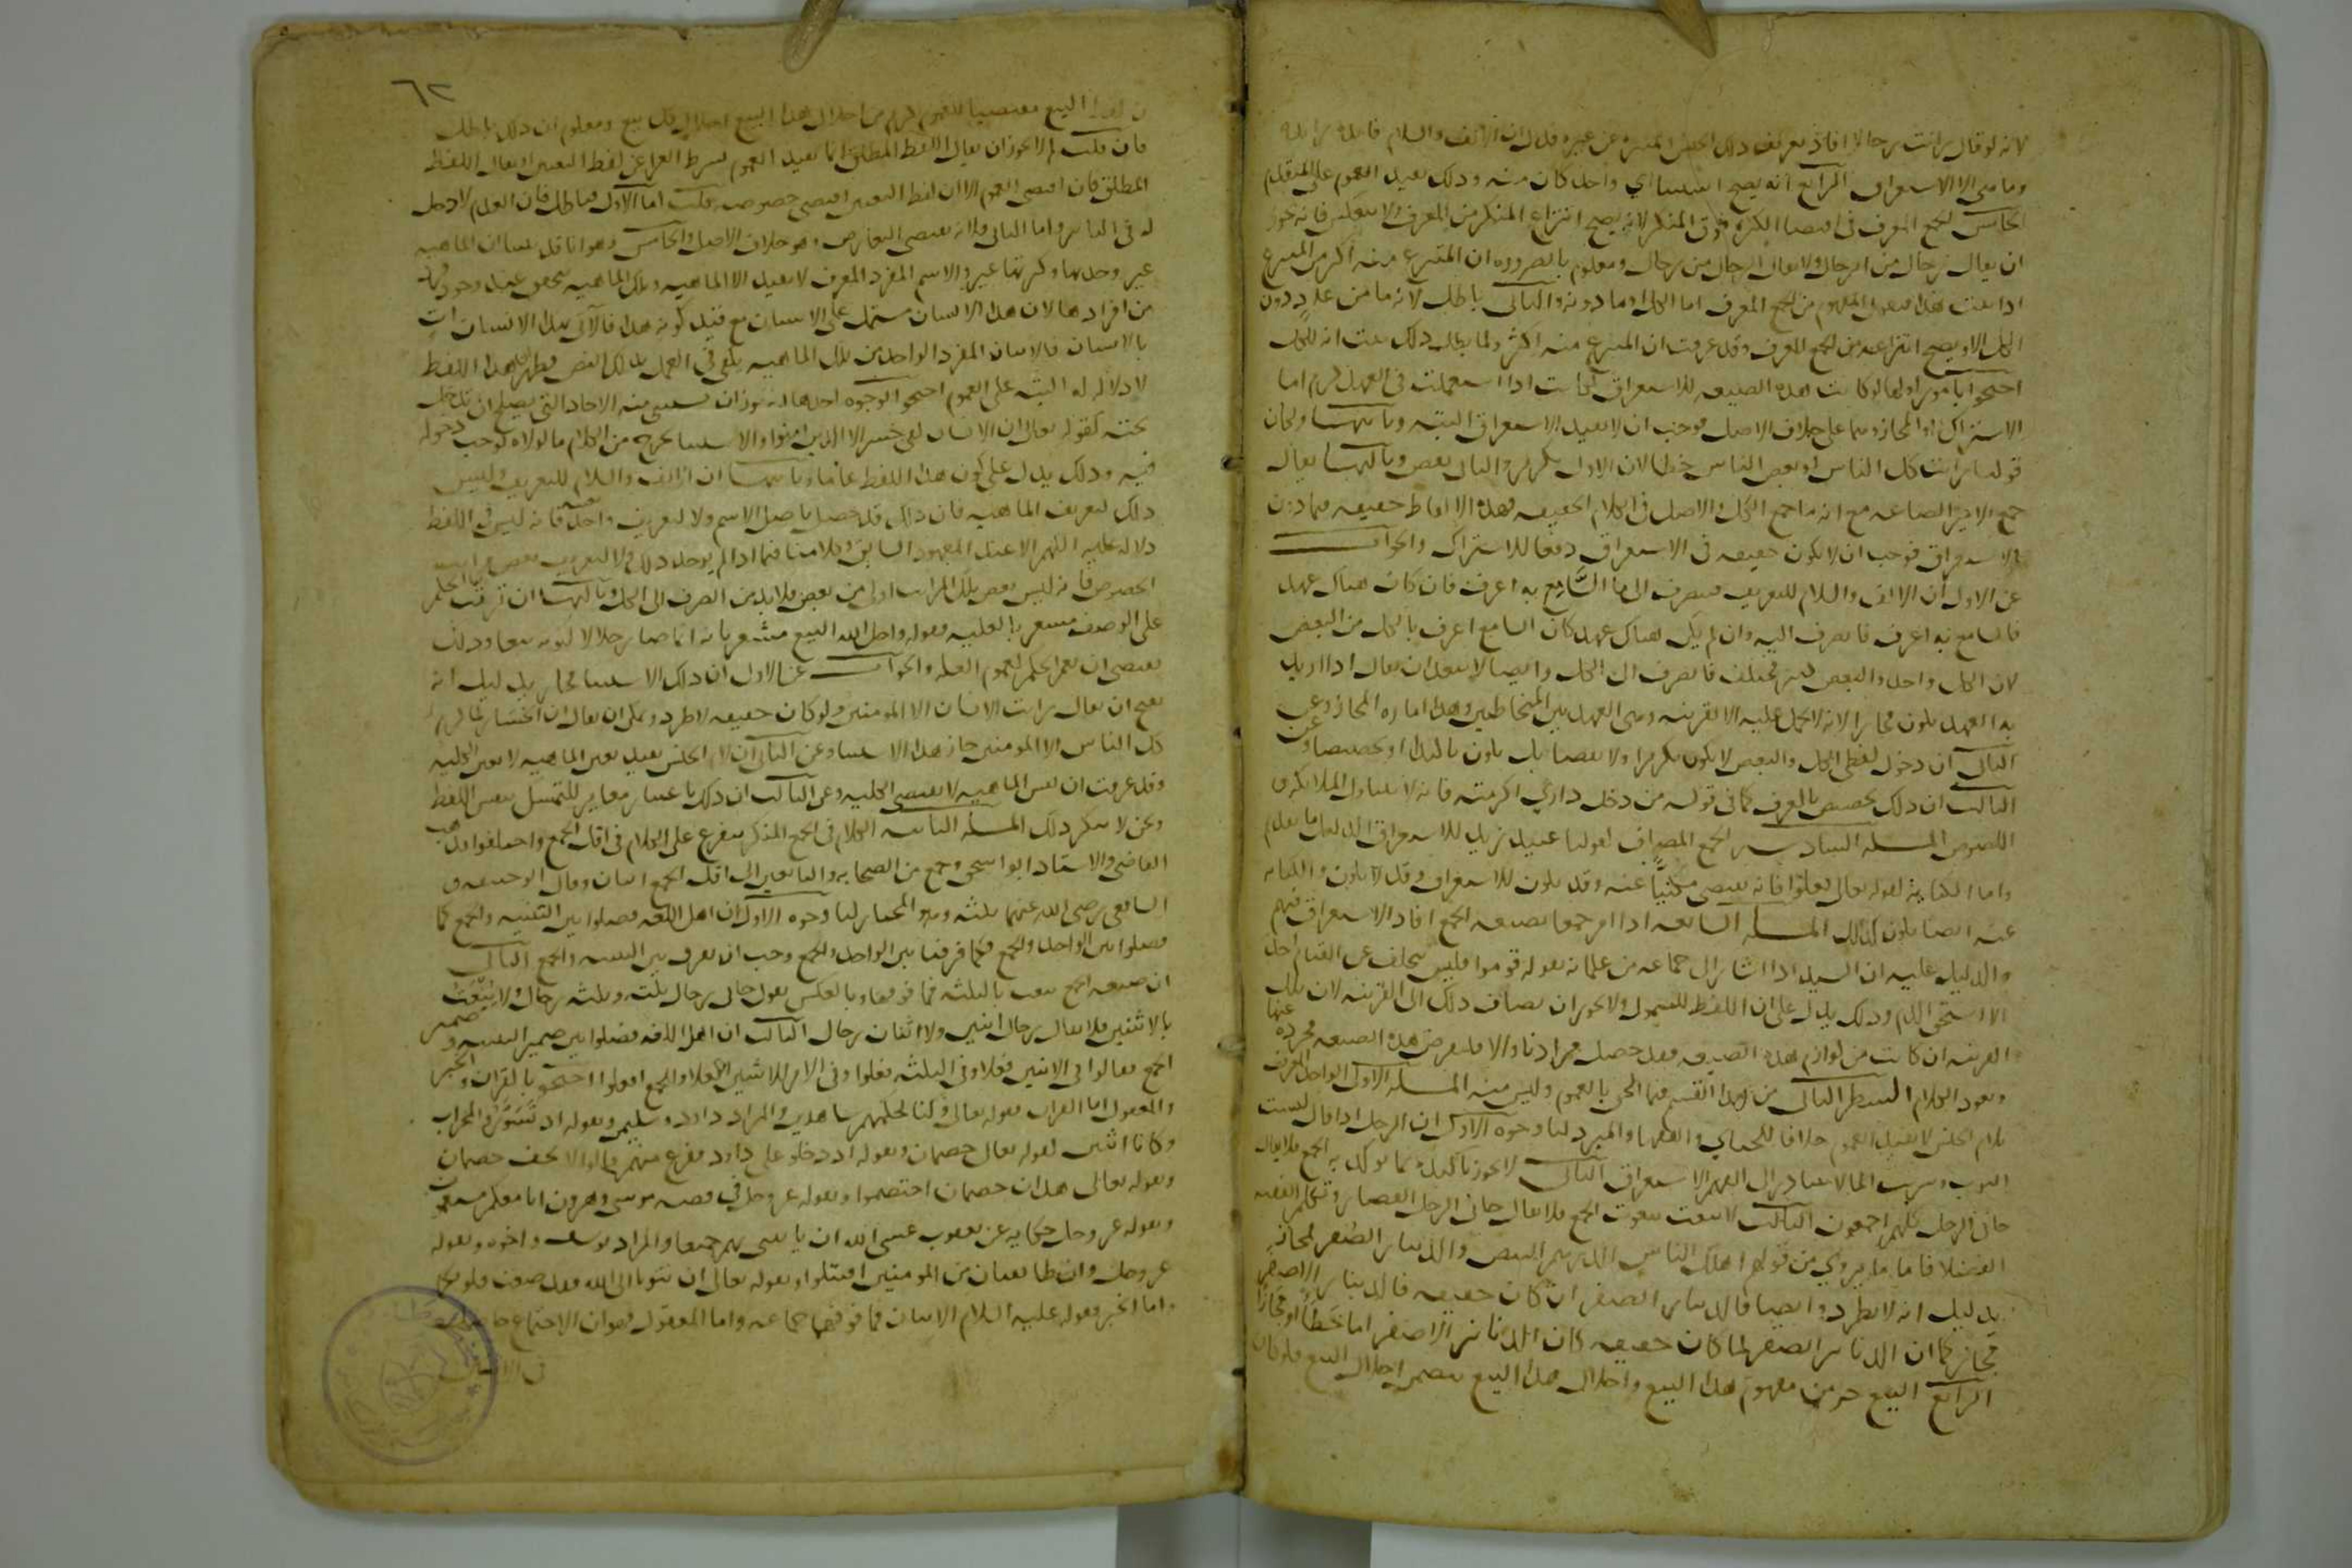 لانه لو قال رايت رجالا افاد تعريف ذلك الجنس وتميزه عن غيره فدل ان الالف واللام فائدة زائدة
وما هي الا الاستغراق الرابع انه يصح استثنا اي واحد كان منه وذلك يفيد العموم على ما تقدم
الخامس الجمع المعرف في اقتضا الكثرة فوق المنكر لانه يصح انتزاع المنكر من المعرف ولا ينعكس فانه يجوز
ان يقال رجال من الرجال ولا يقال الرجال من رجال ومعلوم بالضرورة ان المنتزع منه اكثر من المنتزع
اذا ثبت هذا فنقول المفهوم من الجمع المعرف اما الكل او ما دونه والثاني باطل لانه ما من عدد دون
الكل الا ويصح انتزاعه من الجمع المعرف وقد عرفت ان المنتزع منه اكثر ولما بطل ذلك ثبت انه للكل
احتجوا بامور اولها لو كانت هذه الصيغه للاستغراق لكانت اذا استعملت في العهد لزم اما
الاشتراك او المجاز وهما على خلاف الاصل فوجب ان لا يفيد الاستغراق البته وثانيها لكان
قولنا رايت كل الناس او بعض الناس خطا لان الاول تكرير والثاني نقض وثالثها يقال
جمع الامير الصاغه مع انه ما جمع الكل والاصل في الكلام الحقيقه فهذه الالفاظ حقيقه فيما دون
الاستغراق فوجب ان لا يكون حقيقه في الاستغراق دفعا للاشتراك والجواب
عن الاول ان الالف واللام للتعريف فينصرف الى ما السامع به اعرف فان كان هناك عهد
فالسامع به اعرف فانصرف اليه وان لم يكن هناك عهد كان السامع اعرف بالكل من البعض
لان الكل واحد والبعض كثير مختلف فانصرف الى الكل وايضا لا يبعد ان يقال اذا اريد
به العهد يكون مجازا لانه لا يحمل عليه الا لقرينه وهي العهد بين المتخاطبين وهذا اماره المجاز وعن
الثاني ان دخول لفظي الكل والبعض لا يكون تكريرا ولا نقضا بل يكون تاكيدا او تخصيصا وعن
الثالث ان ذلك تخصيص بالعرف كما في قوله من دخل داري اكرمته فانه لا يتناول الملائكه و
اللصوص المسله السادسه الجمع المضاف كقولنا عبيد زيد للاستغراق الدليل ما تقدم
واما الكنايه كقوله تعالى فعلوا فانه يقتضي مكنيا عنه وقد يكون للاستغراق وقد لا يكون والكنايه
عنه ايضا يكون كذلك المسله السابعه اذا امر جمعا بصيغه الجمع افاد الاستغراق فيهم
والدليل عليه ان السيد اذا اشار الى جماعه من غلمانه بقوله قوموا فليس يتخلف عن القيام احد
الا استحق الذم وذلك يدل على ان اللفظ للشمول ولا يجوز ان يضاف ذلك الى القرينه لان تلك
القرينه ان كانت من لوازم هذه الصيغه فقد حصل مرادنا والا فلنفرض هذه الصيغه مجرده عنها
ويعود الكلام الشطر الثاني من هذا القسم فيما الحق بالعموم وليس منه المسله الاولى الواحد المعرف
بلام الجنس لا يفيد العموم خلافا للجبائي والفقها والمبرد لنا وجوه الاول ان الرجل اذا قال لبست
الثوب وشربت الما لا يتبادر الى الفهم الاستغراق الثاني لا يجوز تاكيده بما يوكد به الجمع فلا يقال
جاني الرجل كلهم اجمعون الثالث لا ينعت بنعوت الجمع فلا يقال جاني الرجل القصار وتكلم الفقيه
الفضلا فاما ما يروي من قولهم اهلك الناس الدرهم البيض والدينار الصفر فمجاز
بدليل انه لا يطرد وايضا فالدينار الصفر ان كان حقيقه فالدينار الاصفر
مجاز كما ان الدنانير الصفر لما كان حقيقه كان الدنانير الاصفر اما خطا او مجازا
الرابع البيع جز من مفهوم هذا البيع واحلال هذا البيع يتضمن احلال البيع فلو كان
٦٢
هذا البيع مقتضيا للعموم لزم من احلال هذا البيع احلال كل بيع ومعلوم ان ذلك باطل
فان قلت لم لا يجوز ان يقال اللفظ المطلق انما يفيد العموم بشرط العرا عن لفظ التعيين او يقال اللفظ
المطلق فان اقتضى العموم الا ان لفظ التعيين اقتضى خصوصه قلت اما الاول فباطل فان العدم لا دخل
له في التاثير واما الثاني فلانه يقتضي التعارض وهو خلاف الاصل والخامس وهو انا قد بينا ان الماهيه
غير وحدتها وكثرتها غير والاسم المفرد المعرف لا يفيد الا الماهيه وتلك الماهيه يتحقق عند وجود فرد
من افرادها لان هذا الانسان مشتمل على الانسان مع قيد كونه هذا فالاتي بهذا الانسان ات
بالانسان فالاتيان المفرد الواحد من تلك الماهيه يكفي في العمل بذلك النص فظهر ان هذا اللفظ
لا دلاله له البته على العموم احتجوا بوجوه احدها انه يجوز ان يستثنى منه الاحاد التي يصلح ان تدخل
تحته كقوله تعالى ان الانسان لفي خسر الا الذين امنوا والاستثنا يخرج من الكلام ما لولاه لوجب دخوله
فيه وذلك يدل على كون هذا اللفظ عاما وثانيها ان الالف واللام للتعريف وليس
ذلك لتعريف الماهيه فان ذلك قد حصل باصل الاسم ولا لتعريف واحد بعينه فانه ليس في اللفظ
دلاله عليه اللهم الا عند المعهود السابق وكلامنا فيما اذا لم يوجد ذلك ولا لتعريف بعض مراتب
الخصوص فانه ليس بعض تلك المراتب اولى من بعض فلا بد من الصرف الى الكل وثالثها ان ترتيب الحكم
على الوصف مشعر بالعليه فقوله واحل الله البيع مشعر بانه انما صار حلالا لكونه بيعا وذلك
يقتضي ان يعم الحكم لعموم العله والجواب عن الاول ان ذلك الاستثنا مجاز بدليل انه
يقبح ان يقال رايت الانسان الا المومنين ولو كان حقيقه لاطرد ويمكن ان يقال ان الخسار لما لزم
كل الناس الا المومنين جاز هذا الاستثنا وعن الثاني ان لام الجنس يفيد تعين الماهيه لا تعين الكليه
وقد عرفت ان نفس الماهيه لا يقتضي الكليه وعن الثالث ان ذلك باعتبار مغاير للتمسك بنفس اللفظ
ونحن لا ننكر ذلك المسله الثانيه الكلام في الجمع المنكر يتفرع على الكلام في اقل الجمع واختلفوا فذهب
القاضي والاستاد ابو اسحق وجمع من الصحابه والتابعين الى ان اقل الجمع اثنان وقال ابو حنيفه و
الشافعي رضي الله عنهما ثلثه وهو المختار لنا وجوه الاول ان اهل اللغه فصلوا بين التثنيه والجمع كما
فصلوا بين الواحد والجمع فكما فرقنا بين الواحد والجمع وجب ان نفرق بين التثنيه والجمع الثاني
ان صيغه الجمع ينعت بالثلثه فما فوقها وبالعكس يقول جاني رجال ثلثه وثلثه رجال ولا ينعت
بالاثنين فلا يقال رجال اثنين ولا اثنان رجال الثالث ان اهل اللغه فصلوا بين ضمير التثنيه وضمير
الجمع فقالوا في الاثنين فعلا وفي الثلثه فعلوا وفي الامر للاثنين افعلا والجمع افعلوا احتجوا بالقران والخبر
والمعقول اما القران فقوله تعالى وكنا لحكمهم شاهدين والمراد داود وسليمن وبقوله اذ تسوروا المحراب
وكانا اثنين لقوله تعالى خصمان وبقوله اذ دخلوا على داود ففزع منهم قالوا لا تخف خصمان
وبقوله تعالى هذان خصمان اختصموا وبقوله عز وجل في قصه موسى وهرون انا معكم مستمعون
وبقوله عز وجل حكايه عن يعقوب عسى الله ان ياتيني بهم جميعا والمراد يوسف واخوه وبقوله
عز وجل وان طائفتان من المومنين اقتتلوا وبقوله تعالى ان تتوبا الى الله فقد صغت قلوبكما
واما الخبر فقوله عليه السلام الاثنان فما فوقهما جماعه واما المعقول فهو ان الاجتماع حاصل